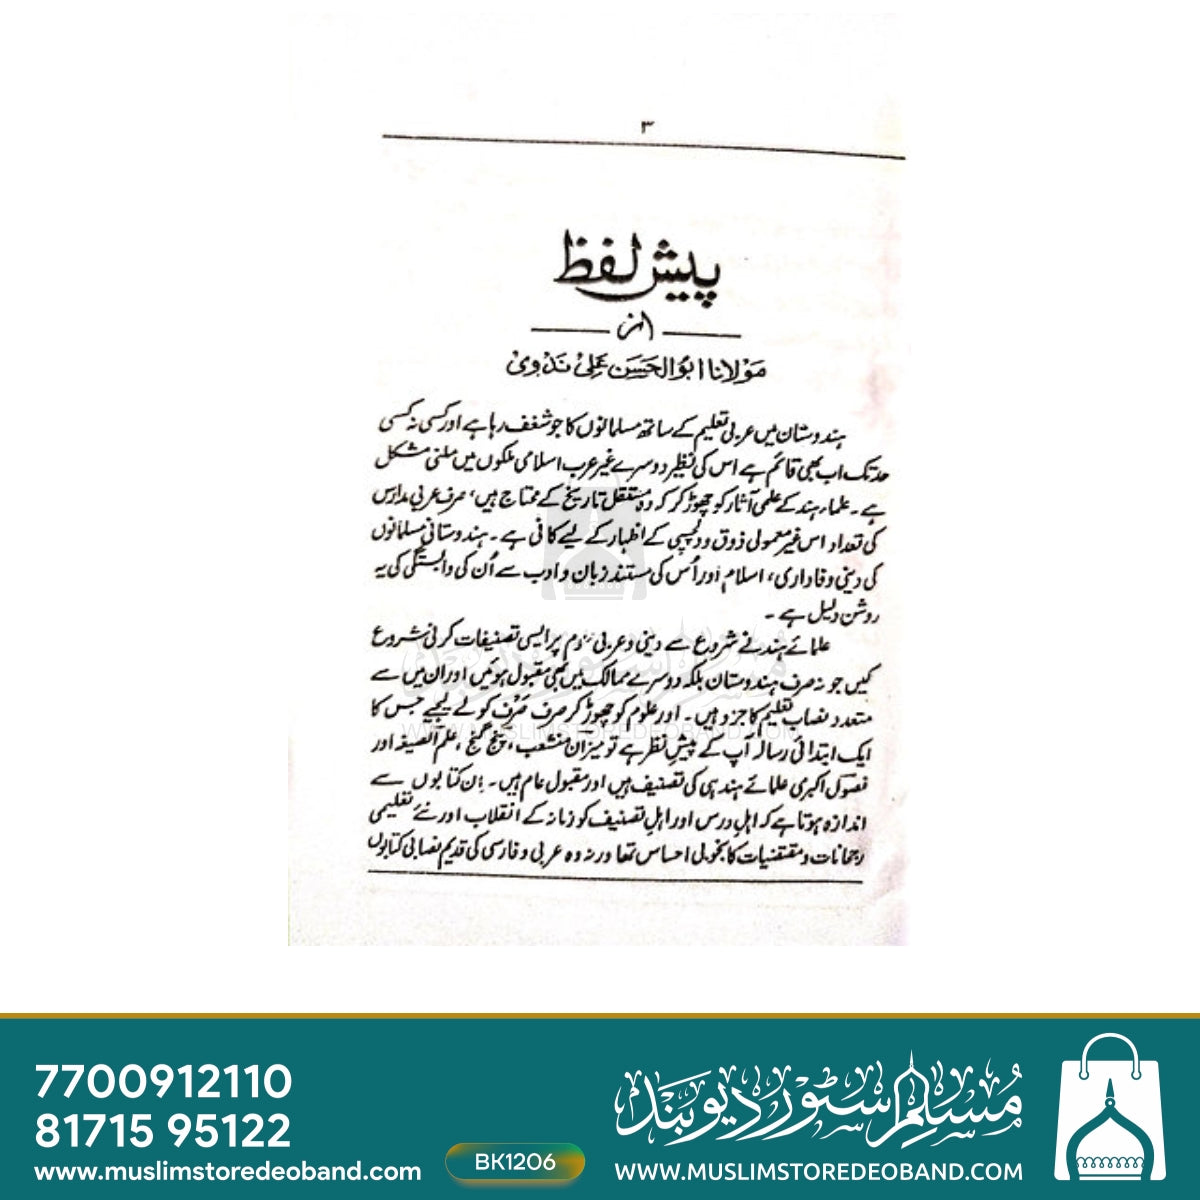 ۳
پیش لفظ
از
مولانا ابوالحسن علی ندوی
ہندوستان میں عربی تعلیم کے ساتھ مسلمانوں کا جو شغف رہا ہے اور کسی نہ کسی
حد تک اب بھی قائم ہے اس کی نظیر دوسرے غیر عرب اسلامی ملکوں میں ملنی مشکل
ہے۔ علماء ہند کے علمی آثار کو چھوڑ کر کہ وہ مستقل تاریخ کے محتاج ہیں، صرف عربی مدارس
کی تعداد اس غیر معمولی ذوق و دلچسپی کے اظہار کے لیے کافی ہے۔ ہندوستانی مسلمانوں
کی دینی وفاداری، اسلام اور اُس کی مستند زبان و ادب سے اُن کی وابستگی کی یہ
روشن دلیل ہے۔
علمائے ہند نے شروع سے دینی و عربی پر ایسی تصنیفات کرنی شروع
کیں جو نہ صرف ہندوستان بلکہ دوسرے ممالک میں بھی مقبول ہوئیں اور ان میں سے
متعدد نصاب تعلیم کا جزو ہیں۔ اور علوم کو چھوڑ کر صرف صَرف کو لے لیجیے جس کا
ایک ابتدائی رسالہ آپ کے پیشِ نظر ہے تو میزان منشعب، پنج گنج، علم الصیغہ اور
فصول اکبری علمائے ہند ہی کی تصنیف ہیں اور مقبول عام ہیں۔ اِن کتابوں سے
اندازہ ہوتا ہے کہ اہلِ درس اور اہلِ تصنیف کو زمانہ کے انقلاب اور نئے تعلیمی
رجحانات و مقتضیات کا بخوبی احساس تھا ورنہ وہ عربی و فارسی کی قدیم نصابی کتابوں
مسلم سٹور دیوبند
WWW.MUSLIMSTOREDEOBAND.COM
7700912110
81715 95122
www.muslimstoredeoband.com
BK1206
مسلم سٹور دیوبند
WWW.MUSLIMSTOREDEOBAND.COM